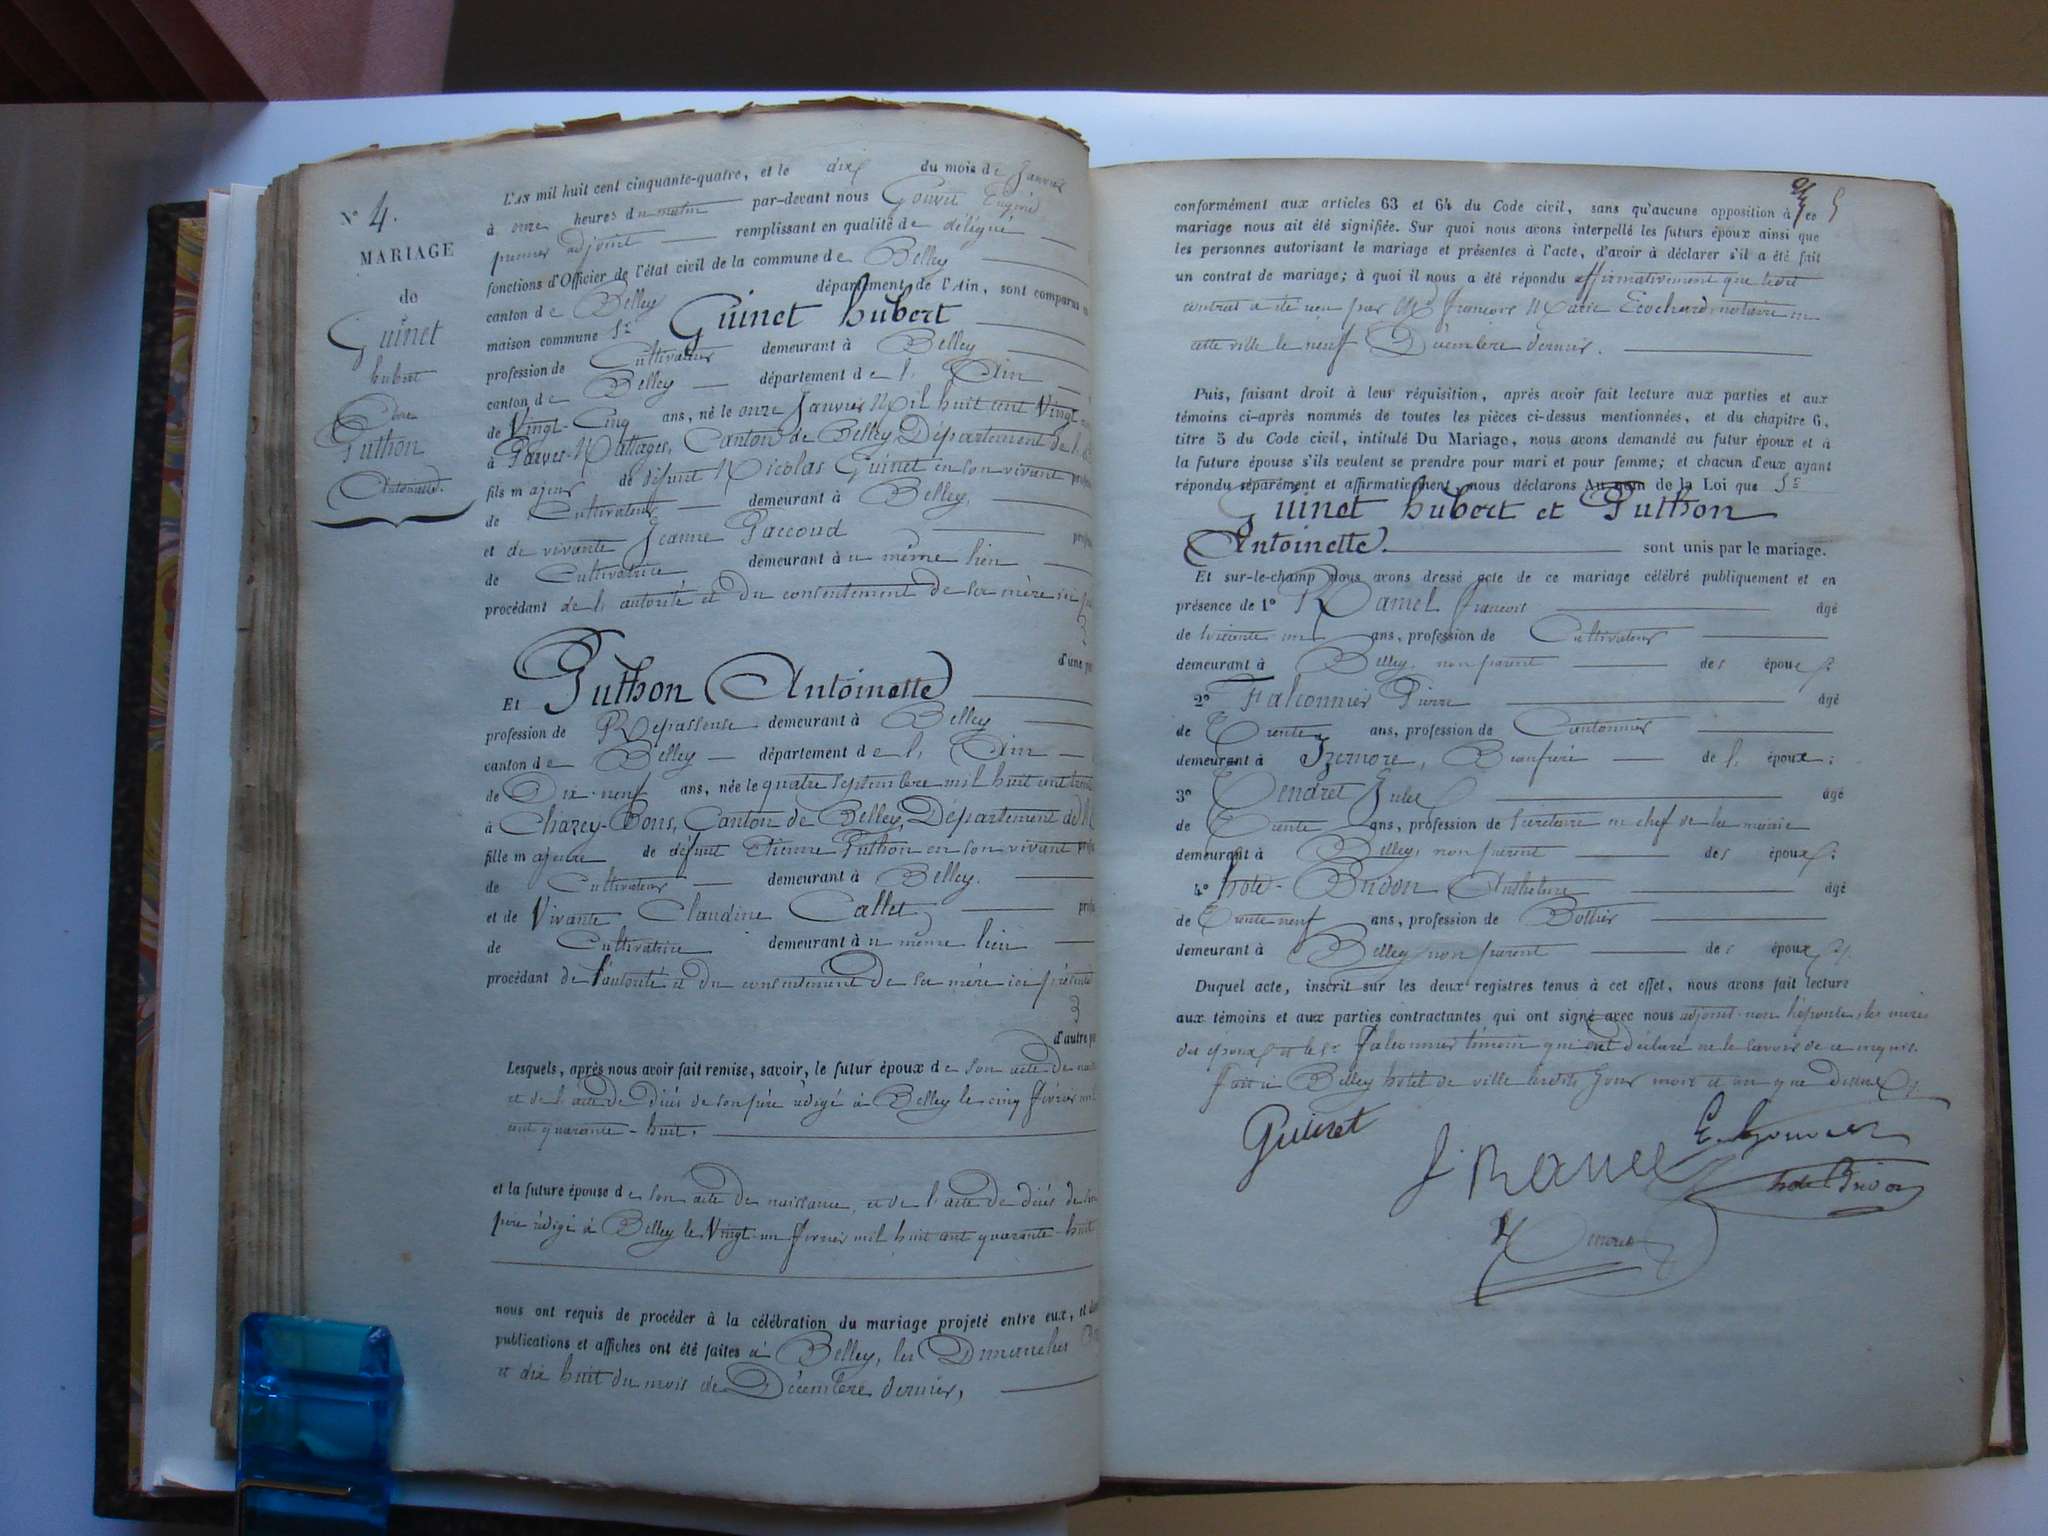 N° 4.
MARIAGE
de
Guinet
hubert
Et
Puthon
Antoinette.
L'AN mil huit cent cinquante-quatre, et le dix du mois de Janvier
à onze heures du matin par-devant nous Gouvet Eugène
premier adjoint remplissant en qualité de délégué
fonctions d'Officier de l'état civil de la commune de Belley
canton de Belley département de l'Ain, sont comparus en
maison commune Sr Guinet hubert
profession de Cultivateur demeurant à Belley
canton de Belley département de l' Ain
de Vingt-Cinq ans, né le onze Janvier Mil huit cent Vingt
à Parves-Nattages, Canton de Belley, Département de l'
fils majeur de défunt Nicolas Guinet en son vivant
de Cultivateur demeurant à Belley,
et de vivante Jeanne Paccoud
de Cultivatrice demeurant au même lieu
procédant de l'autorité et du consentement de sa mère ici
d'une
Et Puthon Antoinette
profession de Repasseuse demeurant à Belley
canton de Belley département de l' Ain
de Dix-neuf ans, née le quatre septembre mil huit cent
à Chazey-Bons, Canton de Belley, Département de
fille majeure de défunt Etienne Puthon en son vivant
de Cultivateur demeurant à Belley.
et de Vivante Claudine Callet
de Cultivatrice demeurant au même lieu
procédant de l'autorité et du consentement de sa mère ici présente
d'autre
Lesquels, après nous avoir fait remise, savoir, le futur époux de son acte de
et de l'acte de décès de son père rédigé à Belley le cinq février mil
cent quarante-huit,
et la future épouse de son acte de naissance, et de l'acte de décès de son
père rédigé à Belley le Vingt-un février mil huit cent quarante-huit
nous ont requis de procéder à la célébration du mariage projeté entre eux, et
publications et affiches ont été faites à Belley, les Dimanches
et dix huit du mois de Décembre dernier,
5
conformément aux articles 63 et 64 du Code civil, sans qu'aucune opposition à ce
mariage nous ait été signifiée. Sur quoi nous avons interpellé les futurs époux ainsi que
les personnes autorisant le mariage et présentes à l'acte, d'avoir à déclarer s'il a été fait
un contrat de mariage; à quoi il nous a été répondu affirmativement que ledit
contrat a été reçu par Me François Marie Ecochard, notaire en
cette ville le neuf Décembre dernier.
Puis, faisant droit à leur réquisition, après avoir fait lecture aux parties et aux
témoins ci-après nommés de toutes les pièces ci-dessus mentionnées, et du chapitre 6,
titre 5 du Code civil, intitulé Du Mariage, nous avons demandé au futur époux et à
la future épouse s'ils veulent se prendre pour mari et pour femme; et chacun d'eux ayant
répondu séparément et affirmativement, nous déclarons Au nom de la Loi que Sr
Guinet hubert et Puthon
Antoinette. sont unis par le mariage.
Et sur-le-champ nous avons dressé acte de ce mariage célébré publiquement et en
présence de 1° Ramel François âgé
de ans, profession de Cultivateur
demeurant à Belley, non parent des époux
2° Falconnier Pierre âgé
de Trente ans, profession de Cantonnier
demeurant à Izernore, Beaufrère de l' époux;
3° Tendret Jules âgé
de Trente ans, profession de Secrétaire en chef de la mairie
demeurant à Belley, non parent des époux;
4° hote-Bridon Anthelme âgé
de Trente neuf ans, profession de Bottier
demeurant à Belley non parent des époux
Duquel acte, inscrit sur les deux registres tenus à cet effet, nous avons fait lecture
aux témoins et aux parties contractantes qui ont signé avec nous adjoint non l'épouse, les mères
des époux et le Sr Falconnier témoin qui ont déclaré ne le savoir de ce requis.
Fait à Belley hotel de ville lesdits jour mois et an que dessus
Guinet